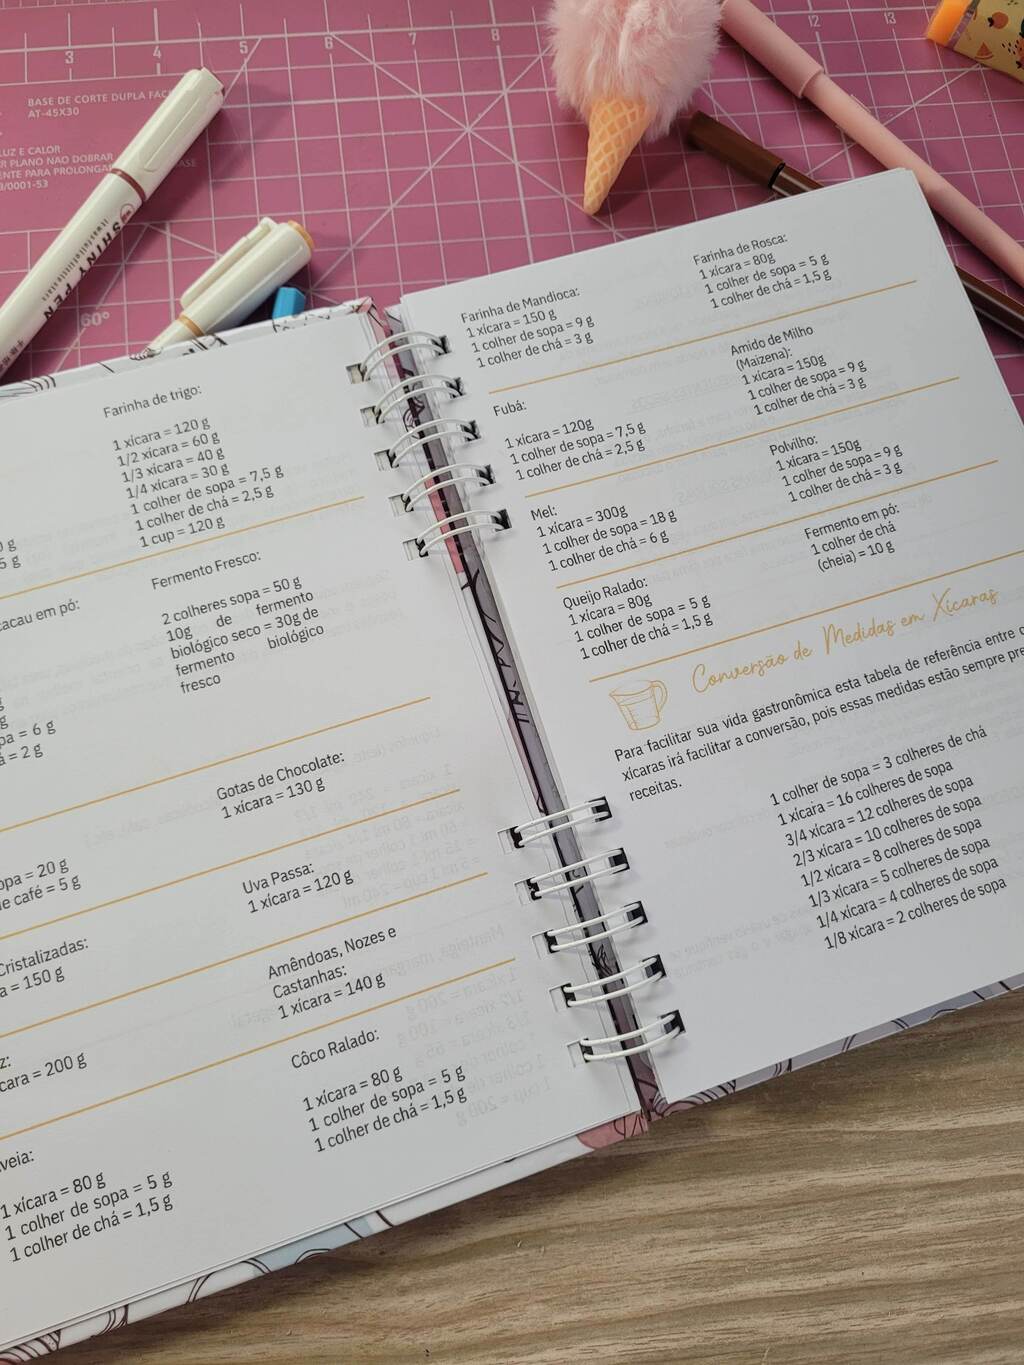 3
4
5
6
7
8
12
13
BASE DE CORTE DUPLA FACE
AT-45X30
LUZ E CALOR
PLANO NAO DOBRAR
PARA PROLONGAR
/0001-53
SHINY PEN
60°
Farinha de trigo:
1 xícara = 120 g
1/2 xícara = 60 g
1/3 xícara = 40 g
1/4 xícara = 30 g
1 colher de sopa = 7,5 g
1 colher de chá = 2,5 g
1 cup = 120 g
g
5 g
cacau em pó:
g
g
pa = 6 g
á = 2 g
Fermento Fresco:
2 colheres sopa = 50 g
10g de fermento
biológico seco = 30g de
fermento biológico
fresco
Gotas de Chocolate:
1 xícara = 130 g
opa = 20 g
e café = 5 g
Uva Passa:
1 xícara = 120 g
Cristalizadas:
a = 150 g
Amêndoas, Nozes e
Castanhas:
1 xícara = 140 g
z:
cara = 200 g
Côco Ralado:
1 xícara = 80 g
1 colher de sopa = 5 g
1 colher de chá = 1,5 g
veia:
1 xícara = 80 g
1 colher de sopa = 5 g
1 colher de chá = 1,5 g
Farinha de Mandioca:
1 xícara = 150 g
1 colher de sopa = 9 g
1 colher de chá = 3 g
Farinha de Rosca:
1 xícara = 80g
1 colher de sopa = 5 g
1 colher de chá = 1,5 g
Fubá:
1 xícara = 120g
1 colher de sopa = 7,5 g
1 colher de chá = 2,5 g
Amido de Milho
(Maizena):
1 xícara = 150g
1 colher de sopa = 9 g
1 colher de chá = 3 g
Mel:
1 xícara = 300g
1 colher de sopa = 18 g
1 colher de chá = 6 g
Polvilho:
1 xícara = 150g
1 colher de sopa = 9 g
1 colher de chá = 3 g
Queijo Ralado:
1 xícara = 80g
1 colher de sopa = 5 g
1 colher de chá = 1,5 g
Fermento em pó:
1 colher de chá
(cheia) = 10 g
Conversão de Medidas em Xícaras
Para facilitar sua vida gastronômica esta tabela de referência entre
xícaras irá facilitar a conversão, pois essas medidas estão sempre pre
receitas.
1 colher de sopa = 3 colheres de chá
1 xícara = 16 colheres de sopa
3/4 xícara = 12 colheres de sopa
2/3 xícara = 10 colheres de sopa
1/2 xícara = 8 colheres de sopa
1/3 xícara = 5 colheres de sopa
1/4 xícara = 4 colheres de sopa
1/8 xícara = 2 colheres de sopa